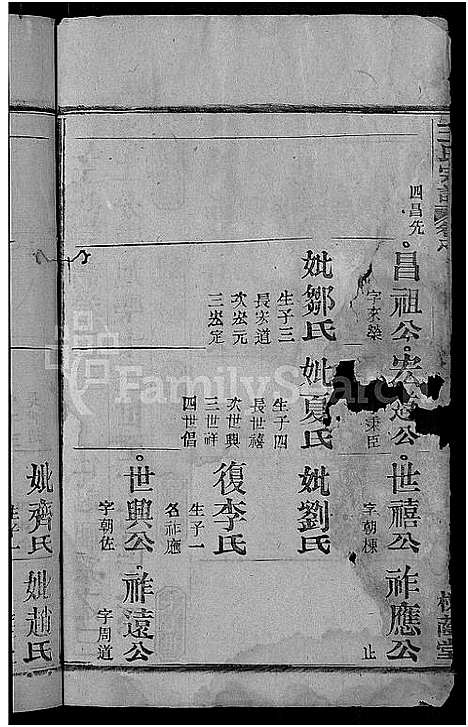 王氏宗譜
四昌先
昌祖公 宏道公 世禧公 祚應公
字來榮
秉臣
字朝棟
止
妣鄒氏 妣夏氏 妣劉氏
生子三
長宏道
次宏元
三宏定
生子四
長世禧
次世興
三世祥
四世倡
復李氏
生子一
名祚應
世興公 祚遠公
字朝佐
字周道
妣齊氏 妣趙氏
FamilySearch